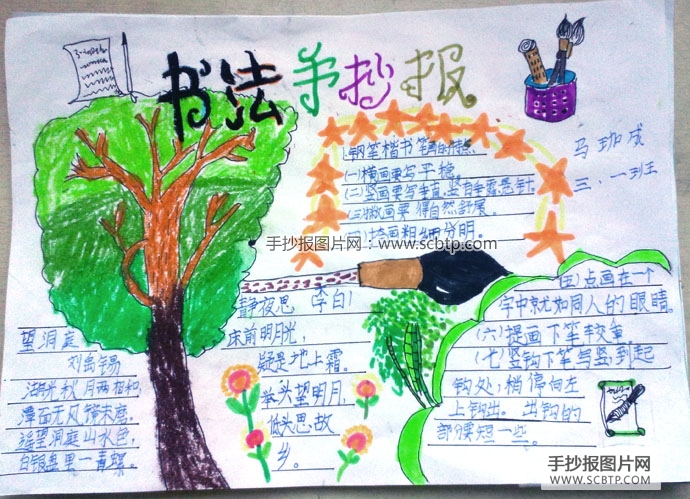 书法手抄报
马珈成
三、一班
钢笔楷书笔画的特点
(一)横画要写平稳。
(二)竖画要写垂直,竖有垂露悬针。
(三)撇画要得自然舒展。
捺画粗细分明。
手抄报图片网:www.scbtp.com
(五)点画在一个
字中就如同人的眼睛。
(六)提画下笔较重
(七)竖钩下笔写竖,到起
钩处,稍停向左
上钩出。出钩的
部要短一些。
静夜思(李白)
床前明月光,
疑是地上霜。
举头望明月,
低头思故
乡。
望洞庭
刘禹锡
湖光秋月两相和
潭面无风镜未磨。
遥望洞庭山水色,
白银盘里一青螺。
手抄报图片网
WWW.SCBTP.COM